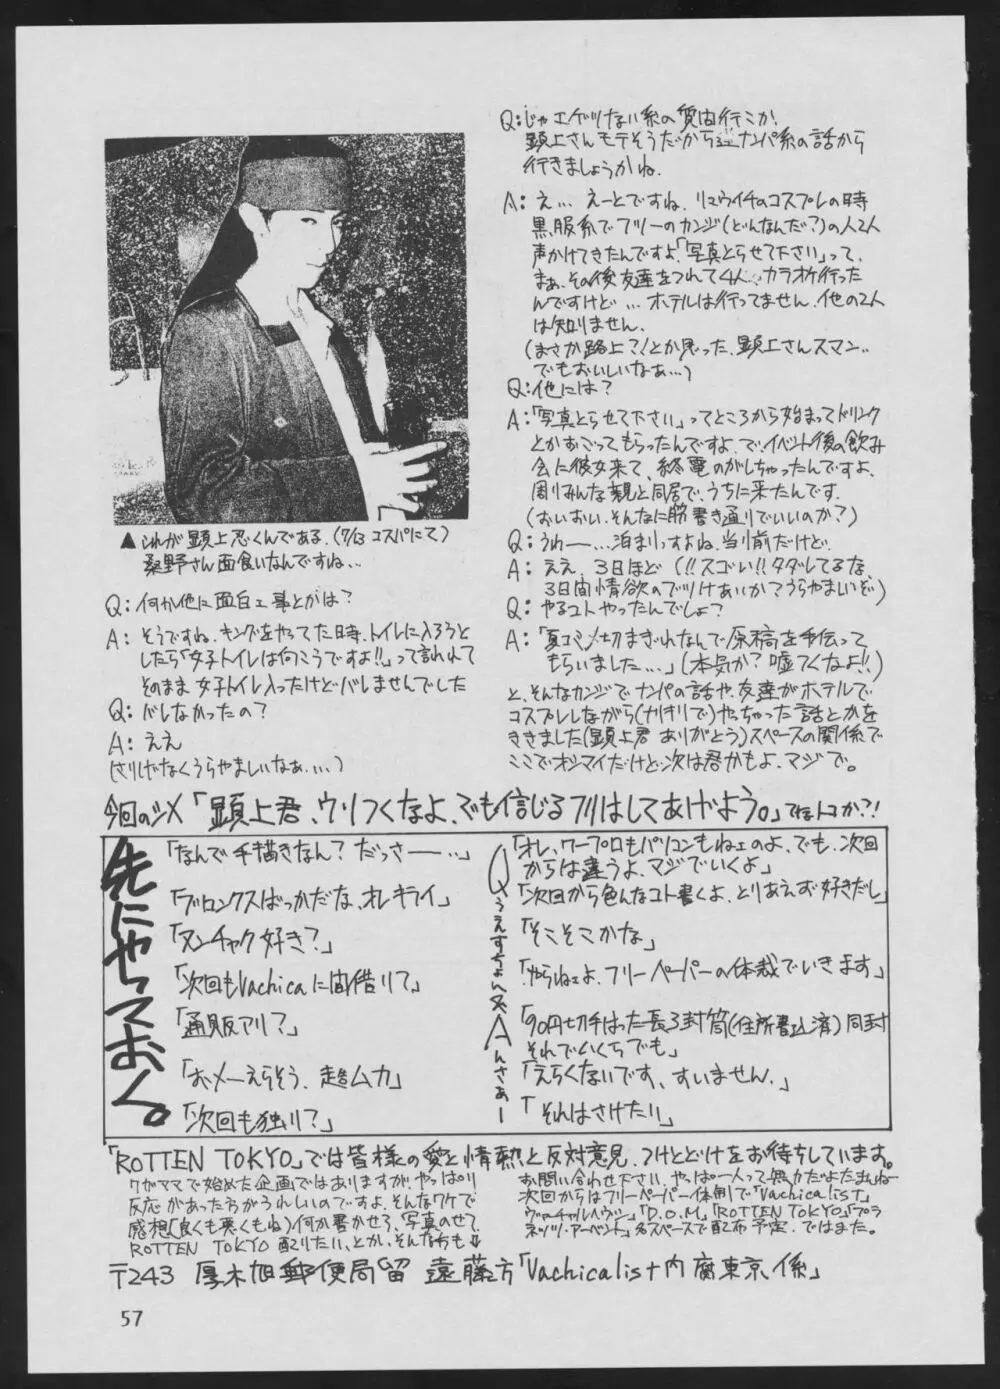 ▲これが顕上忍くんである。(7/13 コスパにて)
桑野さん面食いなんですね…
Q: 何か他に面白い事とかは?
A: そうですね、キングをやってた時、トイレに入ろうと
したら「女子トイレは向こうですよ!!」って言われて
そのまま女子トイレ入ったけどバレませんでした
Q: バレなかったの?
A: ええ
(さりげなくうらやましいなぁ…)
Q: じゃエゲツない系の質問行こか
顕上さんモテそうだから逆ナンパ系の話から
行きましょうかね。
A: え… えーとですね、リュウイチのコスプレの時
黒服系でフリーのカンジ(どんなんだ?)の人2人
声かけてきたんですよ「写真とらせて下さい」って、
まぁ、その後友達をつれて4人でカラオケ行った
んですけど… ホテルは行ってません。他の2人
は知りません。
(まさか路上?!とか思った、顕上さんスマン。
でもおいしいなぁ…)
Q: 他には?
A: 「写真とらせて下さい」ってところから始まってドリンク
とかおごってもらったんですよ、で、イベント後の飲み
会に彼女来て、終電のがしちゃったんですよ、
周りみんな親と同居で、うちに来たんです。
(おいおい、そんなに筋書き通りでいいのか?)
Q: うわー… 泊まりっすよね、当り前だけど。
A: ええ、3日ほど (!!スゴい!!タダレてるな、
3日間情欲のでヅけあいか?うらやまいぞ)
Q: やるコトやったんでしょ?
A: 「夏コミ〆切まぎわなんで原稿を手伝って
もらいました…」(本気か?嘘つくなよ!!)
と、そんなカンジでナンパの話や、友達がホテルで
コスプレしながら(ナリキリで)やっちゃった話とかを
ききました(顕上君 ありがとう)スペースの関係で
ここでオシマイだけど次は君かもよ、マジで。
今回のシメ「顕上君、ウソつくなよ、でも信じるフリはしてあげよう。」てなトコか?!
先にやっておく。
「なんで手描きなん?だっさー…」
「ブロンクスばっかだな、オレキライ」
「ヌンチャク好き?」
「次回もVachicaに間借りて」
「通販アリ?」
「おメーえらそう、超ムカ」
「次回も独り?」
Qうえすちょん&Aんさぁー
「オレ、ワープロもパソコンもねェのよ、でも、次回
からは違うよ、マジでいくよ」
「次回から色んなコト書くよ、とりあえず好きだし」
「そこそこかな」
「やらねェよ、フリーペーパーの体裁でいきます」
「90円切手はった長3封筒(住所書込済)同封
それでいくらでも」
「えらくないです、すいません。」
「それはさけたい」
「ROTTEN TOKYO」では皆様の愛と情熱と反対意見、つけとどけをお待ちしています。
ワガママで始めた企画ではありますが、やっぱり
反応があった方がうれしいのですよ、そんなワケで
感想(良くも悪くもね)何か書かせろ、写真のせて
ROTTEN TOKYO 配りたい、とか、そんな方も
お問い合わせ下さい、やっぱ一人って無力だよたまね
次回からはフリーペーパー体制で「Vachicalist」
ヴァーチャルヘヴン」「D.O.M」「ROTTEN TOKYO」「プラ
ネッツ・アーベント」各スペースで配布予定、ではまた。
〒243 厚木旭郵便局留 遠藤方「Vachicalist内 腐東京係」
57